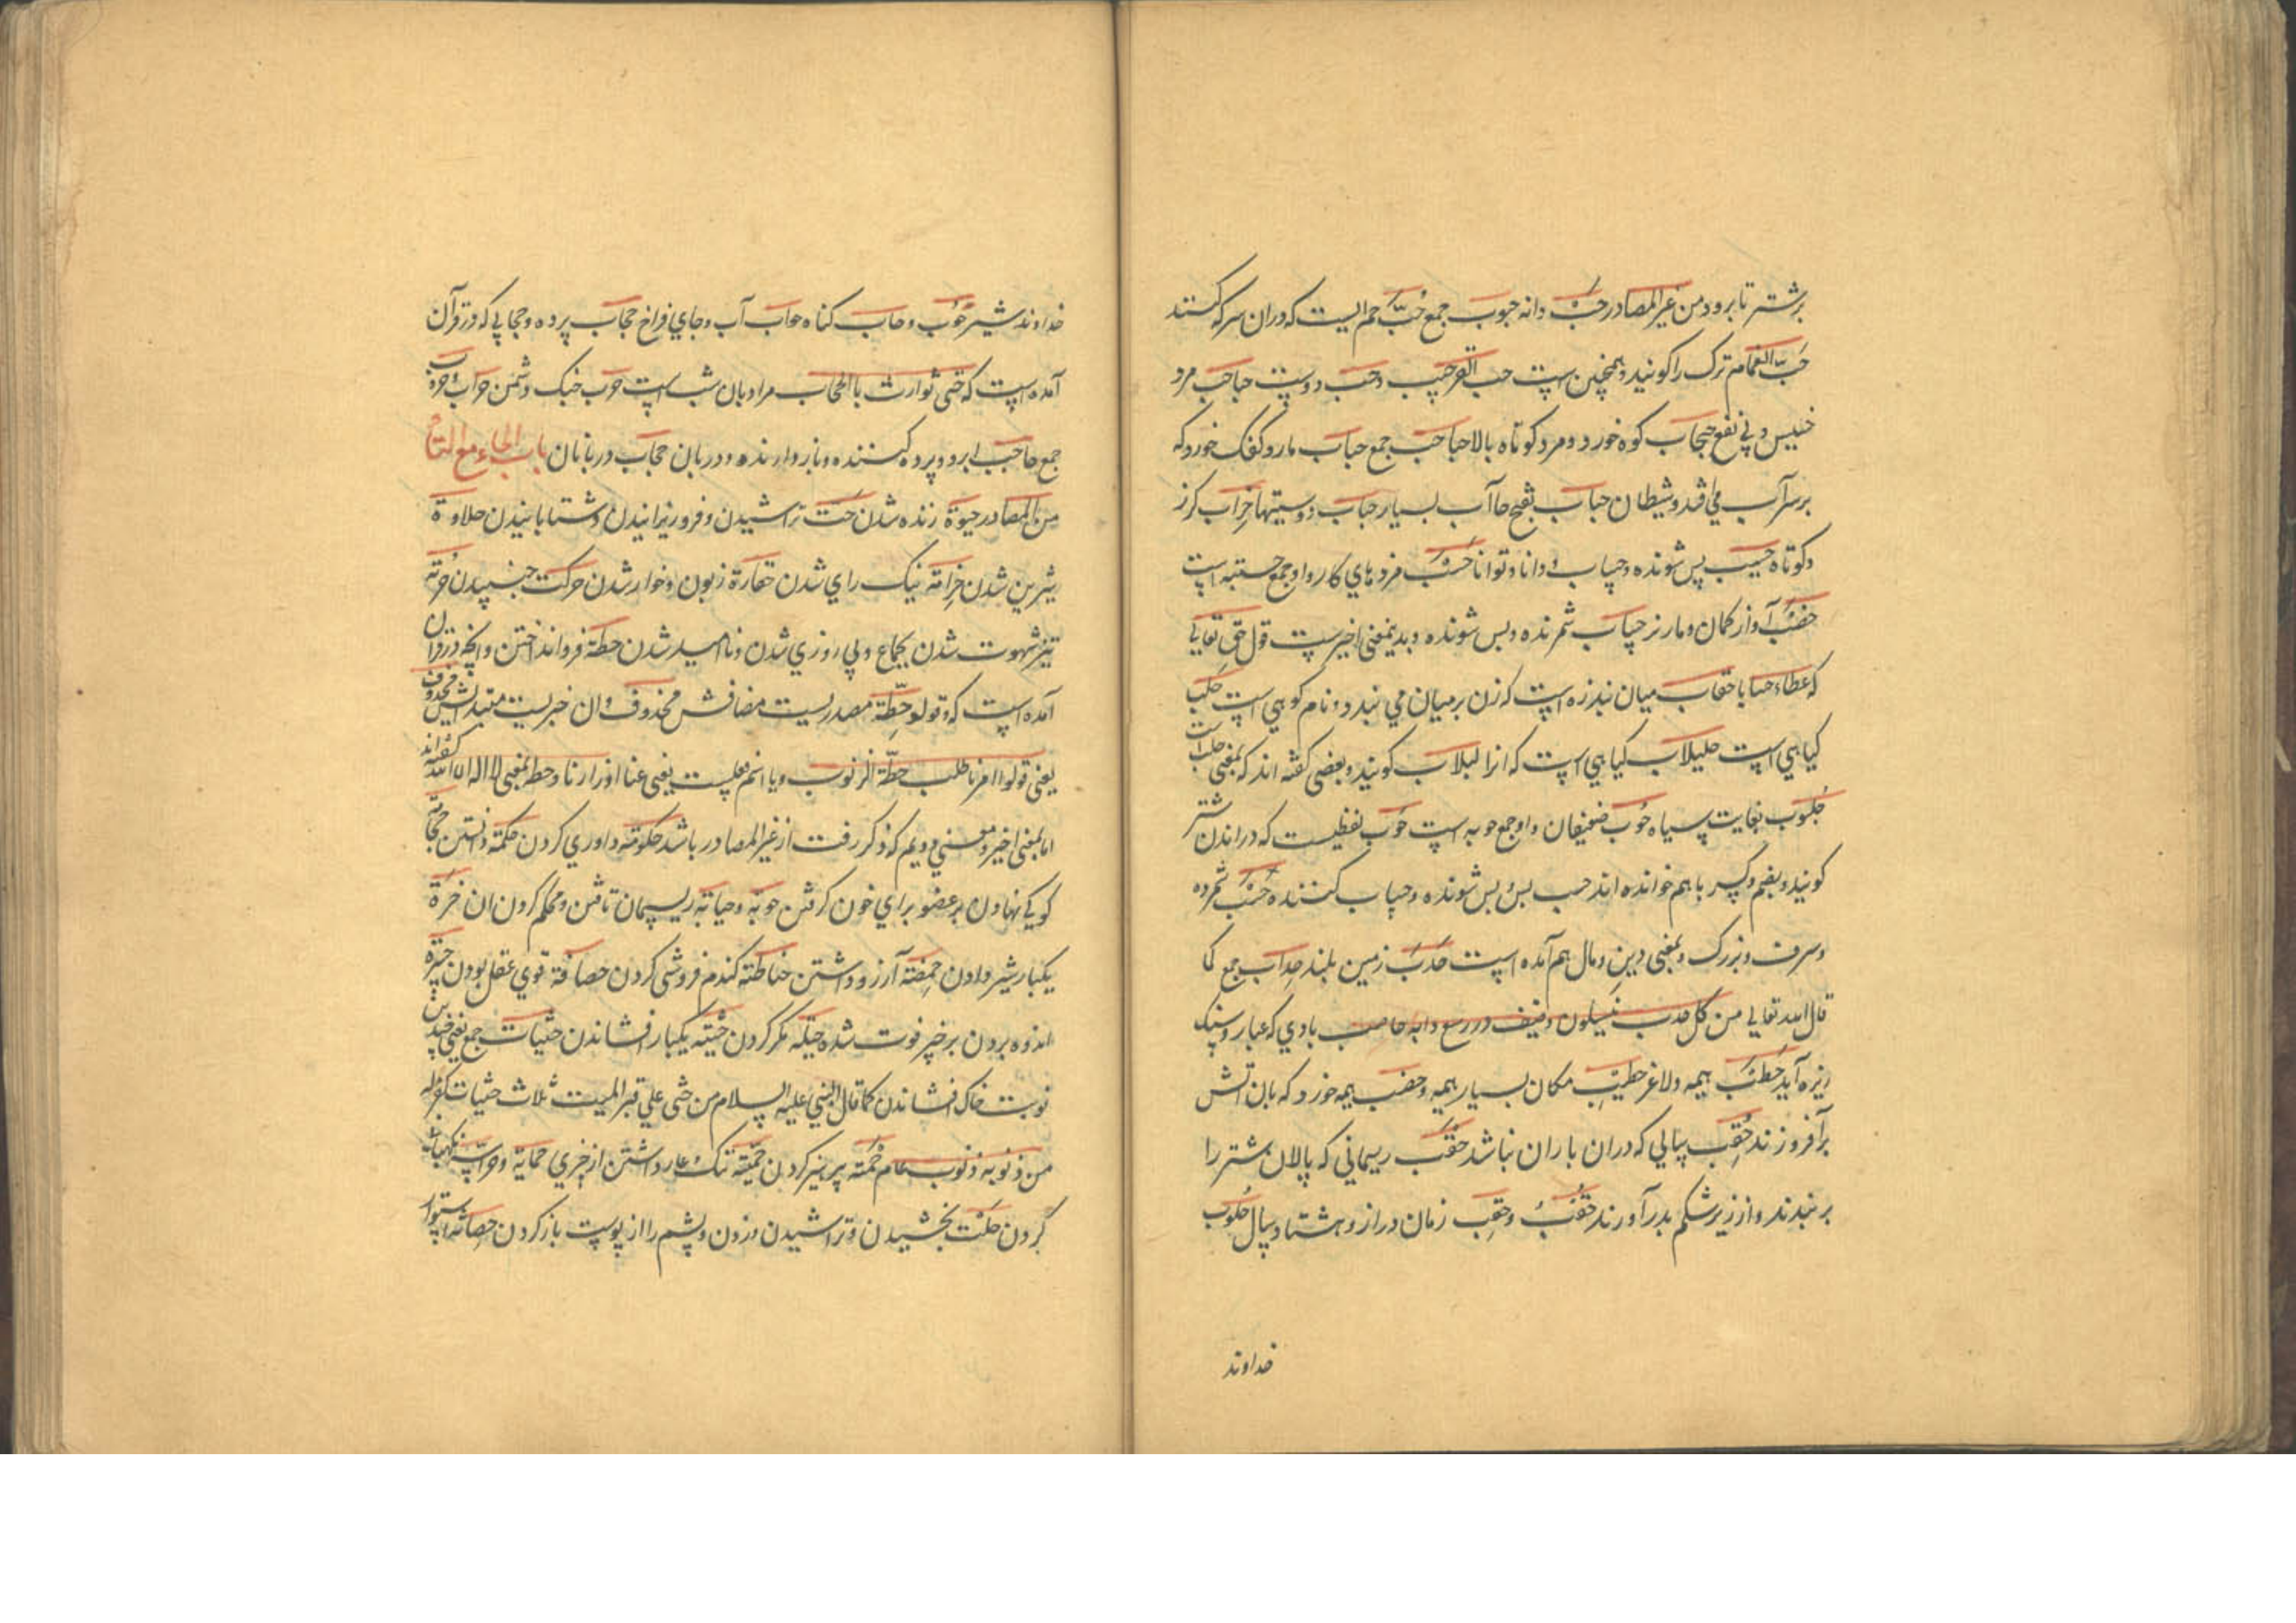 برشتر تا برود من غیر المصادر حبّ دانه حبوب جمع حُبّ خم الیست که دران سرکه کنند
حَبّ الغمام تکرک را کویند و همچنین است حب القر حبیب وحب دوست حباحب مرد
خسیس و بی نفع حبحاب کوه خورد و مرد کوتاه بالا حباحب جمع حباب مار و کفک خورد که
بر سر آب می افتد و شیطان حباب بفتح حا آب بسیار حباب دوستیها حِزاب کرز
و کوتاه حسیب بس شونده و حساب و دانا و توانا حسب فرد های کار روا و جمع حسبه است
حضب آواز کمان و مار نر حساب شمرنده و بس شونده و بدینمعنی اخیر ست قول حق تعالی
که عطاء حسابا حقاب میان بند زه است که زن بر میان می بندد و نام کوهی است حلب
کیاهی است حلبلاب کیاهی است که انرا لبلاب کویند و بعضی کفته اند که بمعنی حلب است
حُلبوب بغایت سیاه حُوب ضعیفان و او جمع حوبه است حَوب لفظیست که در راندن شتر
کویند و بضم و کسر با هم خوانده اند حسب بس و بس شونده و حساب کننده حسب شمرده
و سرف و بزرک و بمعنی دین و مال هم آمده است حدب زمین بلند حِداب جمع کما
قال الله تعالی من کل حدب ینسلون حاصب بادی که غبار و سنک
ریزه آید حطب هیمه و لاغر حطیب مکان بسیار هیمه و حصب هیمه خورد که بان آتش
برافروزند حقِب سالی که دران باران نباشد حقب ریسمانی که پالان شتر را
بربندند و از زیر شکم بدر آورند حقب وحقِب زمان دراز و هشتاد سال حلوب
خداوند
خداوند شیر حُوب و حاب کناه حواب آب و جای فراخ حجاب پرده و حجابی که در قرآن
آمده است که حتی توارت بالحجاب مراد بان شب است حرب جنک و دشمن حراب و حروب
جمع حاجب ابرو و پرده کننده و باز دارنده و دربان حجاب دربانان باب الحاء مع التاء
من المصادر حیوة زنده شدن حت تراشیدن و فرو ریزانیدن و شتابانیدن حلاوة
شیرین شدن حزامة نیک رای شدن حقارة زبون و خوار شدن حرکت جنبیدن حرقة
تیز شهوت شدن بجماع و بی روزی شدن و ناامید شدن حطة فرو انداختن و انچه در قران
آمده است که وقولو حطّة مصدریست مضافش محذوف و ان خبریست مبتدایش محذوف
یعنی قولوا امرنا طلب حطة الذنوب و یا اسم فعلیست یعنی حط عنا اوزارنا و حط بمعنی لا اله الا الله کفته اند
اما بمعنی اخیر و معنی دویم که ذکر رفت از غیر المصادر باشد حکومة داوری کردن حکمة دانستن حجامة
کویکی نهادن بر عضو برای خون کرفتن حوبة و حیاتة ریسمان تافتن و محکم کردن ان
یکبار شیر دادن آرزو داشتن حناطة کندم فروشی کردن حصافة قوی عقل بودن حسرة
اندوه بردن بر چیز فوت شده حیلة مکر کردن حثیة یکبار افشاندن حثیات جمع یعنی چند
نوبت خاک افشاندن کما قال النبی علیه السلام من حثی علی قبر المیت ثلاث حثیات کفر له
من ذنوبه ذنوب عام حُمة پرهیز کردن حمیّة ننک و عار داشتن از چیزی حمایة و حراسة نکهبانی
کردن حلت بخشیدن و تراشیدن و زدن و پشم را از پوست باز کردن حصانة استوار